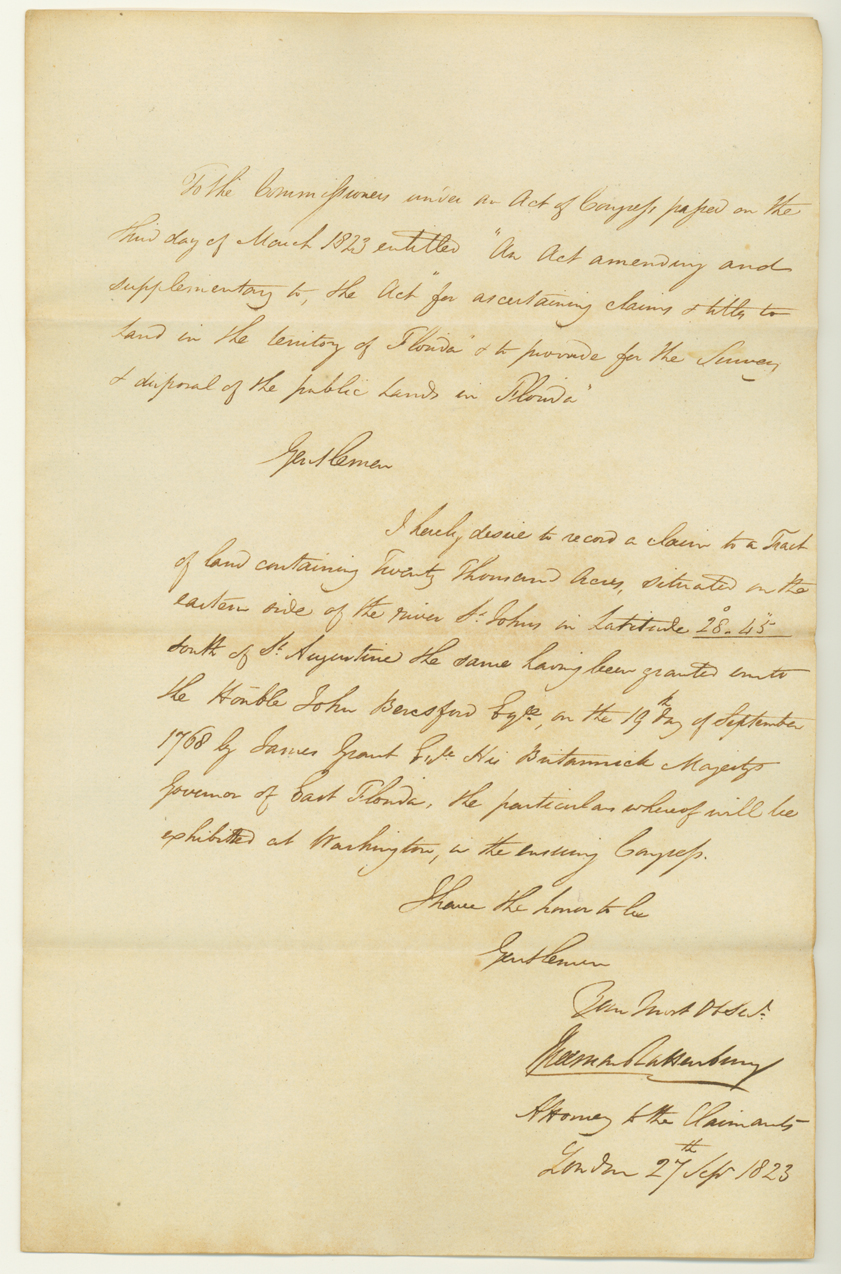 To the Commissioners under an Act of Congress passed on the
third day of March 1823 entitled "An Act amending and
supplementary to, the Act "for ascertaining claims & titles to
land in the territory of Florida" & to provide for the Survey
& disposal of the public Lands in Florida"
Gentlemen
I hereby desire to record a claim to a Tract
of land containing Twenty Thousand Acres, situated on the
eastern side of the river St. Johns in Latitude 28°. 45"
South of St. Augustine the same having been granted unto
the Honble John Beresford Esqre, on the 19th day of September
1768 by James Grant Esqre His Britannick Majestys
Governor of East Florida, the particulars whereof will be
exhibited at Washington, in the ensuing Congress.
I have the honor to be
Gentlemen
Your Most Obt Sert.
Rattenbury
Attorney to the Claimants
London 27th Sepr 1823